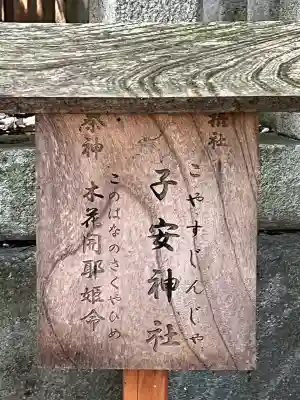 摂社
こやすじんじゃ
子安神社
祭神
木花開耶姫命
このはなのさくやひめ